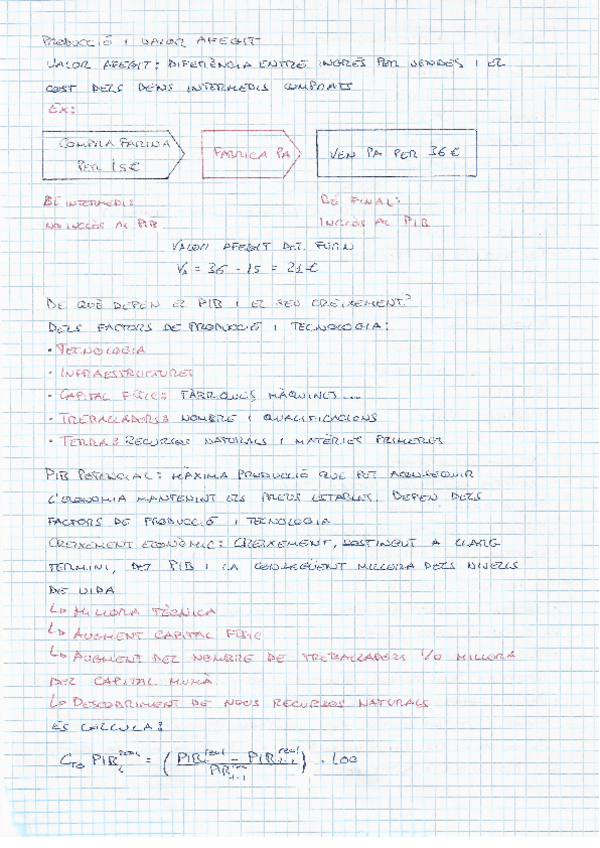 PRODUCCIÓ I VALOR AFEGIT
VALOR AFEGIT: DIFERÈNCIA ENTRE INGRÉS PER VENDES I EL
COST DELS BENS INTERMEDIS COMPRATS
EX:
COMPRA FARINA
PER 15€
FABRICA PA
VEN PA PER 36€
BÉ INTERMEDI:
NO INCLÒS AL PIB
BÉ FINAL:
INCLÒS AL PIB
VALOR AFEGIT DEL FORN
VA = 36 - 15 = 21€
DE QUÈ DEPEN EL PIB I EL SEU CREIXEMENT?
DELS FACTORS DE PRODUCCIÓ I TECNOLOGIA:
· TECNOLOGIA
· INFRAESTRUCTURES
· CAPITAL FÍSIC: FÀBRIQUES MÀQUINES...
· TREBALLADORS: NOMBRE I QUALIFICACIONS
· TERRA: RECURSOS NATURALS I MATÈRIES PRIMERES
PIB POTENCIAL: MÀXIMA PRODUCCIÓ QUE POT ACONSEGUIR
L'ECONOMIA MANTENINT ELS PREUS ESTABLES. DEPEN DELS
FACTORS DE PRODUCCIÓ I TECNOLOGIA
CREIXEMENT ECONÒMIC: CREIXEMENT, SOSTINGUT A LLARG
TERMINI, DEL PIB I LA CONSEGÜENT MILLORA DELS NIVELLS
DE VIDA
↳ MILLORA TÈCNICA
↳ AUGMENT CAPITAL FÍSIC
↳ AUGMENT DEL NOMBRE DE TREBALLADORS I/O MILLORA
DEL CAPITAL HUMÀ
↳ DESCOBRIMENT DE NOUS RECURSOS NATURALS
ES CALCULA:
CTO PIB real t = (PIB real t - PIB real t-1 / PIB real t-1) · 100